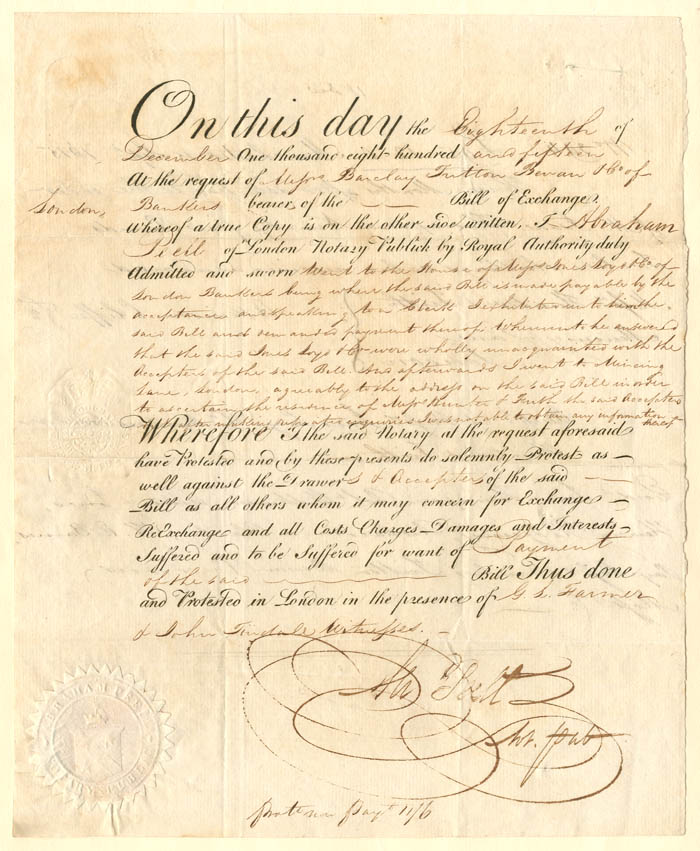 On this day the Eighteenth of
December One thousand eight hundred and fifteen
At the request of Messrs Barclay Tritton Bevan & Co of
London, Bankers bearer of the Bill of Exchange,
Whereof a true Copy is on the other side written, I Abraham
of London Notary Publick by Royal Authority duly
Admitted and sworn Went to the House of Messrs Jones Loyd & Co of
London Bankers being where the said Bill is made payable by the
acceptance and speaking to a Clerk I exhibited unto him the
said Bill and demanded payment thereof Whereunto he answered
that the said Jones Loyd & Co were wholly unacquainted with the
Accepters of the said Bill. And afterwards I went to Mincing
Lane, London, agreeably to the address on the said Bill in order
to ascertain the residence of Messrs Hunter & Firth the said Accepters
after enquiries I was not able to obtain any information thereof
Wherefore I the said Notary at the request aforesaid
have Protested and by these presents do solemnly Protest as
well against the Drawers & Accepters of the said
Bill as all others whom it may concern for Exchange
ReExchange and all Costs Charges Damages and Interests
Suffered and to be Suffered for want of Payment
of the said Bill Thus done
and Protested in London in the presence of G. L. Farmer
& John Tindale Witnesses.
Not. Pub